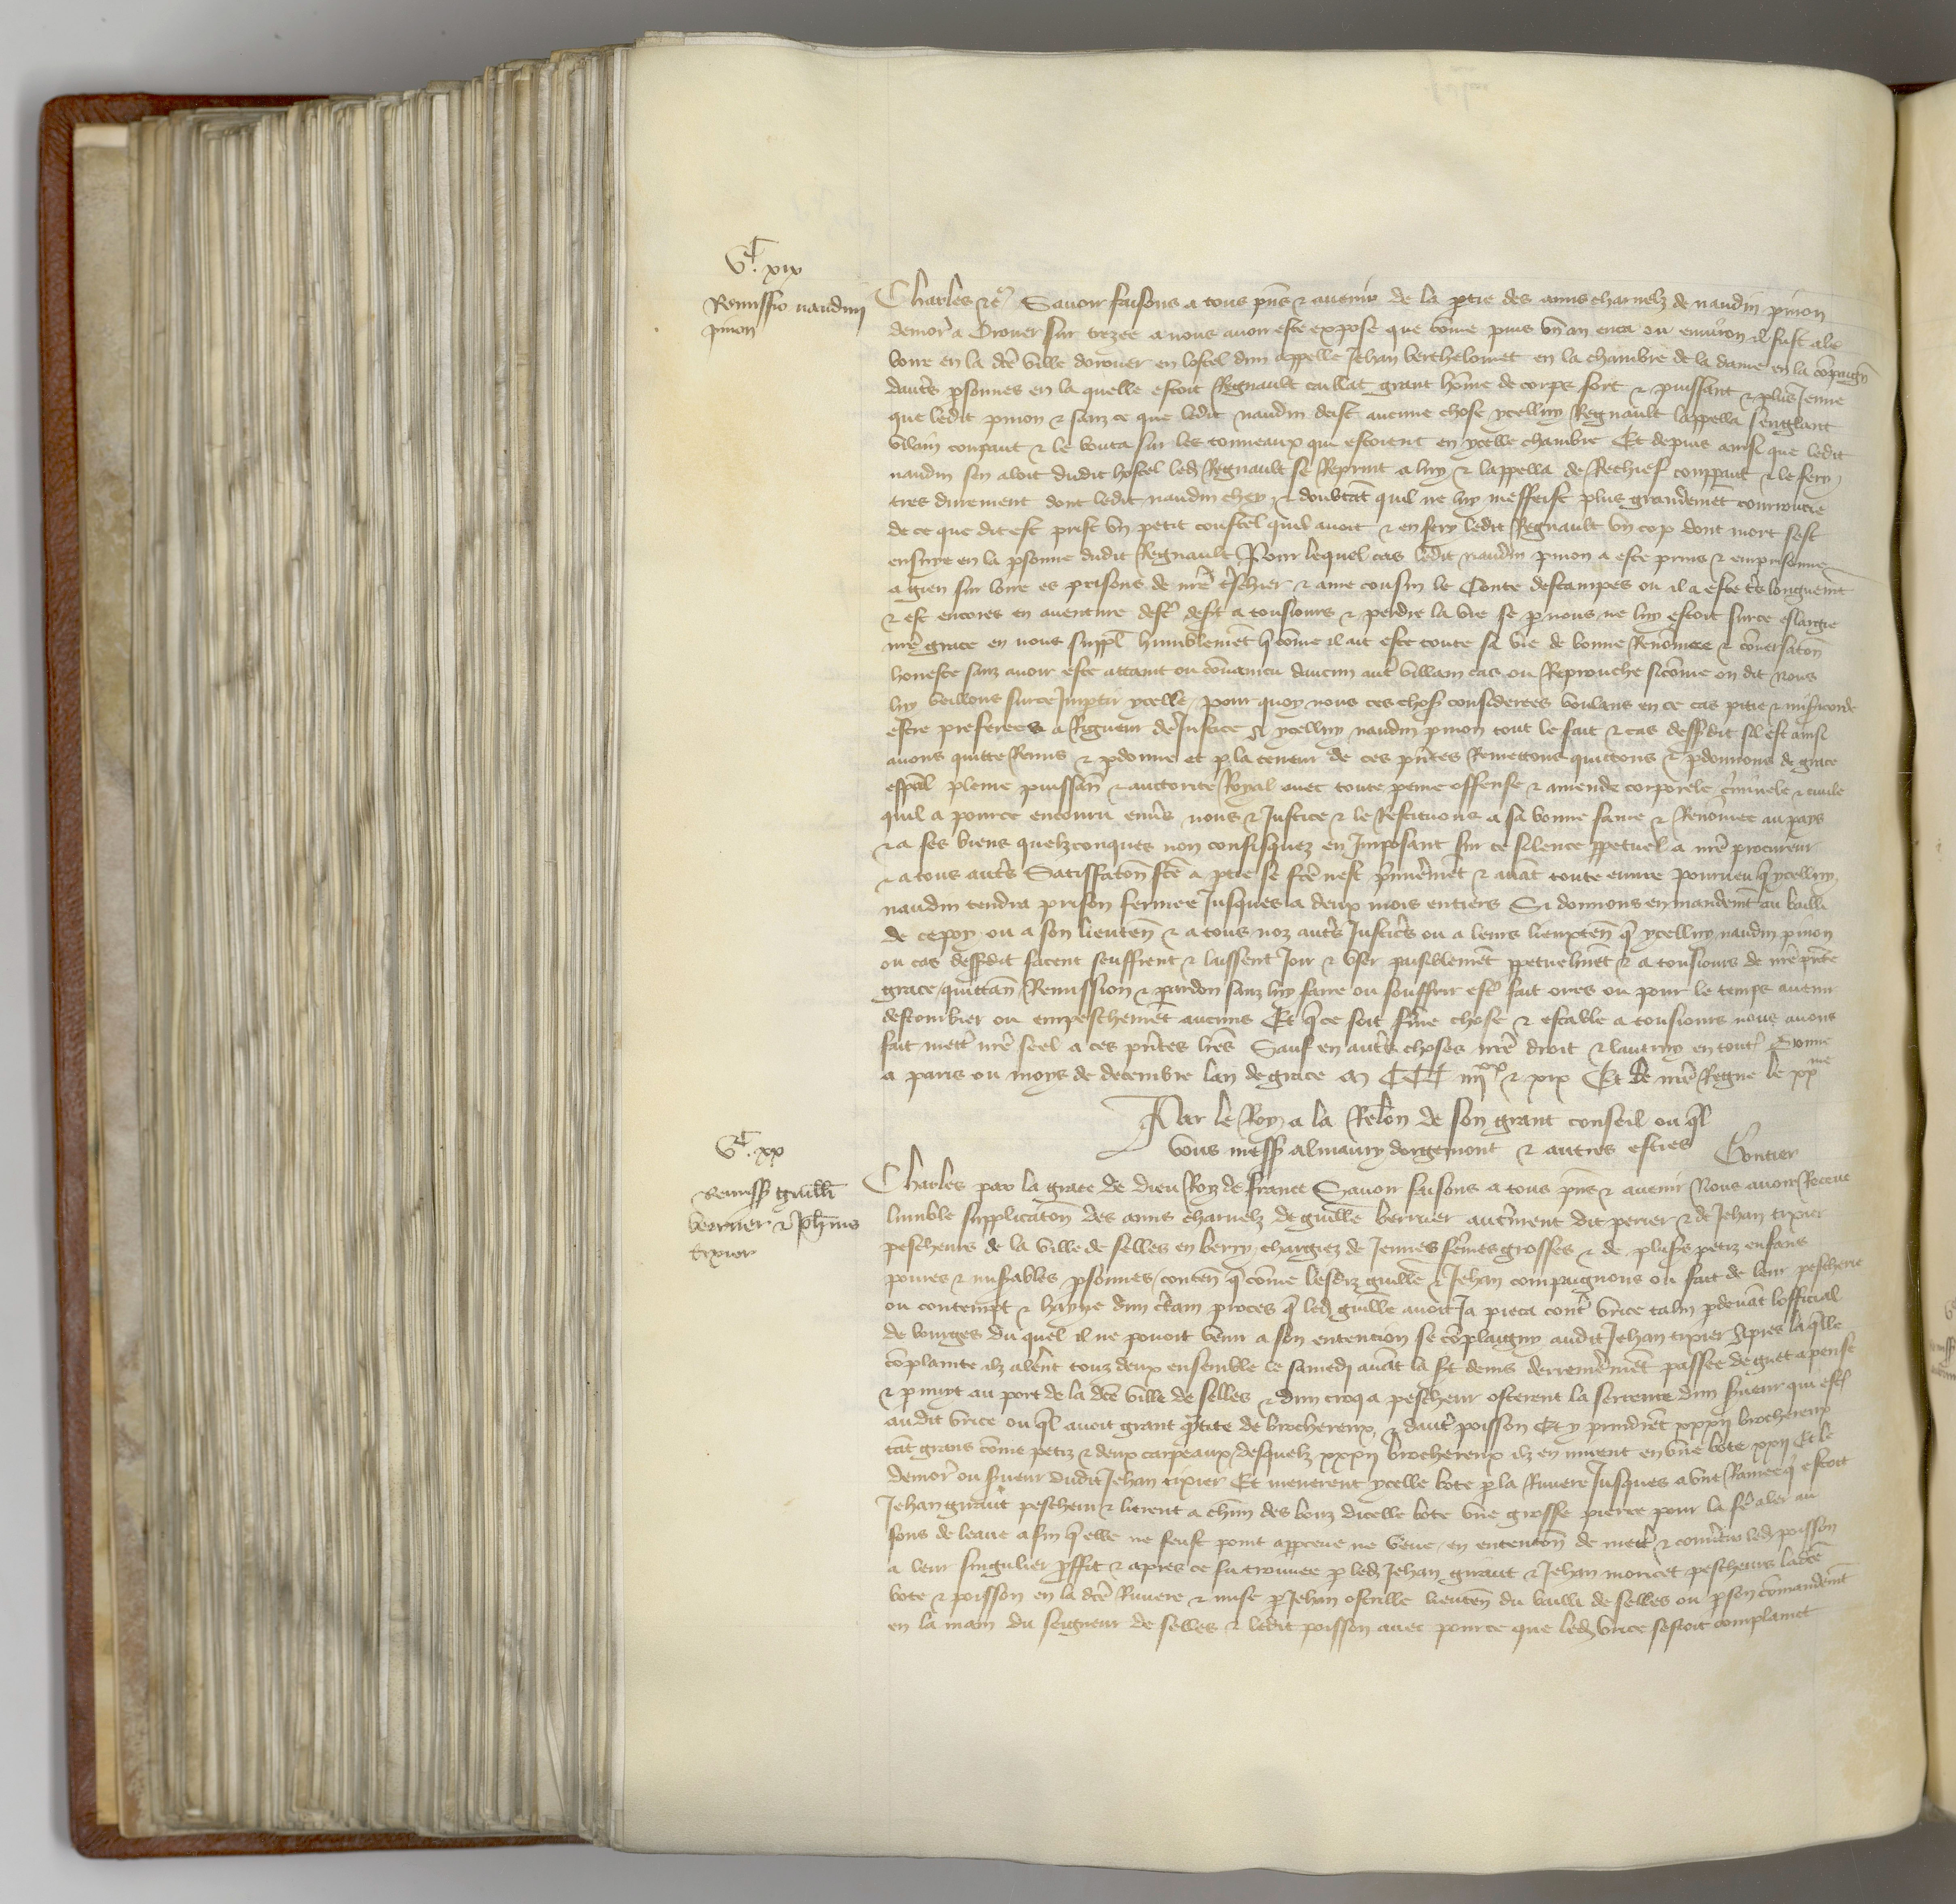 Vᶜ. xix
Remissio naudini
pinon
Charles etc. Savoir faisons a tous pñs & avenir de la ptie des amis charnelz de naudin pinon
demorͬ a Orouer sur trezee a nous avoir este expose que cõme puis un an enca ou environ il fust ale
boire en la dcẽ ville dorouer en lostel dun appelle Jehan berthelomet en la chambre de la dame en la cõpaignͤ
dautrẽs psonnes en la quelle estoit Regnault caillat grant hõme de corps fort & puissant & plus Jenne
que ledit pinon & sanz ce que ledit naudin deist aucune chose ycelluy Regnault lappella senglant
vilain couppaut & le bouta sur les tonneaux qui estoient en ycelle chambre Et depuis ainsi que ledit
naudin sen aloit dudit hostel led Regnault se Reprint a luy & lappella de Rechief couppaut & le fery
tres durement dont ledit naudin chey & doubtãt quil ne luy meffeist plus grandemẽt courroucie
de ce que dit est prist un petit coustel quil avoit & en fery ledit Regnault un cop dont mort sest
ensuye en la psonne dudit Regnault Pour lequel cas ledit naudin pinon a este prins & emprisonne
a gien sur loire es prisons de nrẽ trẽschier & ame cousin le Conte destampes ou il a este trẽs longuemẽt
& est encores en aventure destrẽ desit a tousiours & perdre la vie se p nous ne luy estoit surce eslargie
nrẽ grace en nous suppl humblemẽt q̃ cõme il ait este toute sa vie de bonne Renõmee & cõversatõn
honeste sanz avoir este attaint ou cõvaincu daucun autͬ villain cas ou Reprouche sicõme on dit nous
luy veillons surce Imptir ycelle / pour quoy nous ces chosͤ considerees voulans en ce cas pitie & mis̃icorde
estre preferees a Rigueur de Justice A ycelluy naudin pinon tout le fait & cas dessusdit sil est ainsi
avons quitte Remis & pdonne et p la teneur de ces pñtes Remettons quittons & pdonnons de grace
espẽal pleine puissanͨ & auctorite Royal avec toute peine offense & amende corporele crĩminele & civile
quil a pource encouru envẽrs nous & Justice & le Restituons a sa bonne fame & Renõmee au pays
& a ses biens quelzconques non confisquez en Imposant sur ce silence ppetuel a nrẽ procureur
& a tous autrẽs Satiffatõn fcẽ a ptie se fcẽ nest p̃mieremẽt & avãt toute euvre pourveu q̃ ycelluy
naudin tendra prison fermee Jusques a deux mois entiers Si donnons en mandemẽt au bailli
de cepoy ou a son lieuten̄ & a tous noz autrẽs Justicͬs ou a leurs lieuxten̄ q̃ ycelluy naudin pinon
ou cas dessusdit facent seuffrent & laissent Joir & user paisiblemẽt ppetuelmẽt & a tousiours de nrẽ pñte
grace / quittanͨ Remission & pardon sanz luy faire ou souffrir estͬ fait ores ou pour le temps avenir
destourbier ou empeschemẽt aucuns Et q̃ ce soit ferme chose & estable a tousiours nous avons
fait mettͬ nrẽ seel a ces pñtes lrẽs Sauf en autrẽs choses nrẽ droit & lautruy en toutͤ Donne
a paris ou moys de decembre lan de grace M CCC iiijˣˣ & xix Et de nrẽ Regne le xxᵐᵉ
Par le Roy a la Relõn de son grant conseil ou q̃l
vous messͬ almaury dorgemont & autres esties Gontier
Vᶜ. xx
Remissͦ Guillĩ
berruier & Joh̃nis
tixier
Charles par la grace de dieu Roy de france Savoir faisons a tous pñs & avenir Nous avoir Receue
lumble supplicatõn des amis charnelz de guillẽ berruier autͬment dit perier & de Jehan tixier
pescheurs de la ville de selles en berry chargiez de Jennes fẽmes grosses & de plusͬs petiz enfans
poures & mis̃ables psonnes / conten̄ q̃ cõme lesdiz guillẽ & Jehan compaignons ou fait de leur pescherie
ou contempt & hayne dun certain proces q̃ led guillẽ avoit Ja pieca contͬ vrice talin pdevãt lofficial
de bourges du quel il ne povoit venir a son entencion se cõplaigny audit Jehan tixier Apres laq̃lle
cõplainte ilz alerẽt touz deux ensemble le samedi avãt la sᵗ denis derrenieremẽt passee de guet apense
& p nuyt au port de la dcẽ ville de selles & dun croq a pescheur osterent la serreure dun sueur qui estͦ
audit vrice ou q̃l avoit grant q̃ntite de brochereux & dautͬ poisson Et y prindrẽt xxxij brochereux
tãt grans cõme petiz & deux carpeaux / desquelz xxxij brochereux ilz en mirent en une bote xxij Et le
demorͬ ou sueur dudit Jehan tixier Et menerent ycelle bote p la Riviere Jusques a une Ramee q̃ estoit
Jehan giraut pescheur & lierent a chũn des bouz dicelle bote une grosse pierre pour la faͬ aler au
fons de leaue afin q̃ elle ne feust point apperceue ne veue / en entencõn de mettͬ & convertir led poisson
a leur singulier proffit & apres ce fu trouvee p led Jehan giraut & Jehan moricet pescheurs ladcẽ
bote & poisson en la dcẽ Riviere & mise p Jehan ostrille lieuten̄ du bailli de selles ou p son cõmandemẽt
en la main du seigneur de selles & ledit poisson avec pource que led vrice sestoit complaint